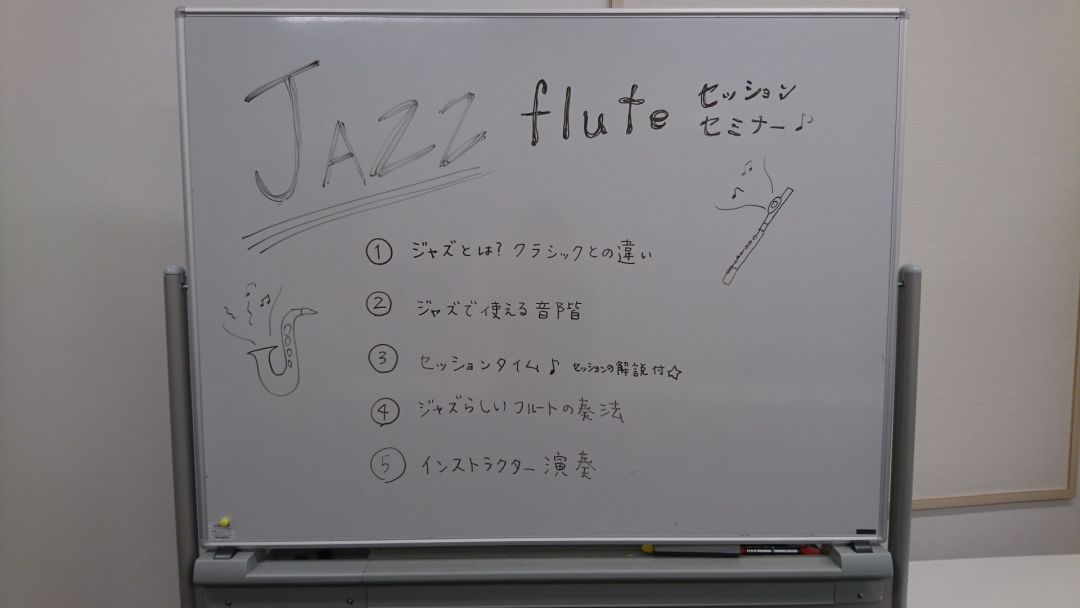 JAZZ flute セッション
セミナー♪
① ジャズとは?クラシックとの違い
② ジャズで使える音階
③ セッションタイム♪ セッションの解説付☆
④ ジャズらしいフルートの奏法
⑤ インストラクター演奏